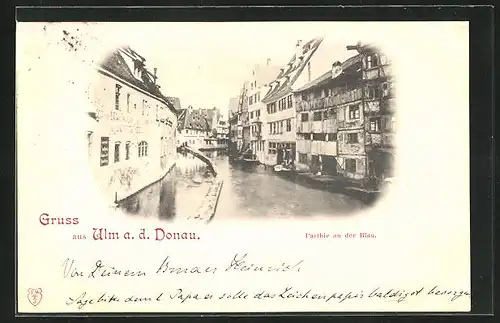 Gruss
aus Ulm a. d. Donau.
Parthie an der Blau.
Von Deinem Bruder Heinrich
Sage bitte dem l. Papa er solle das Zeichenpapier baldigst besorgen